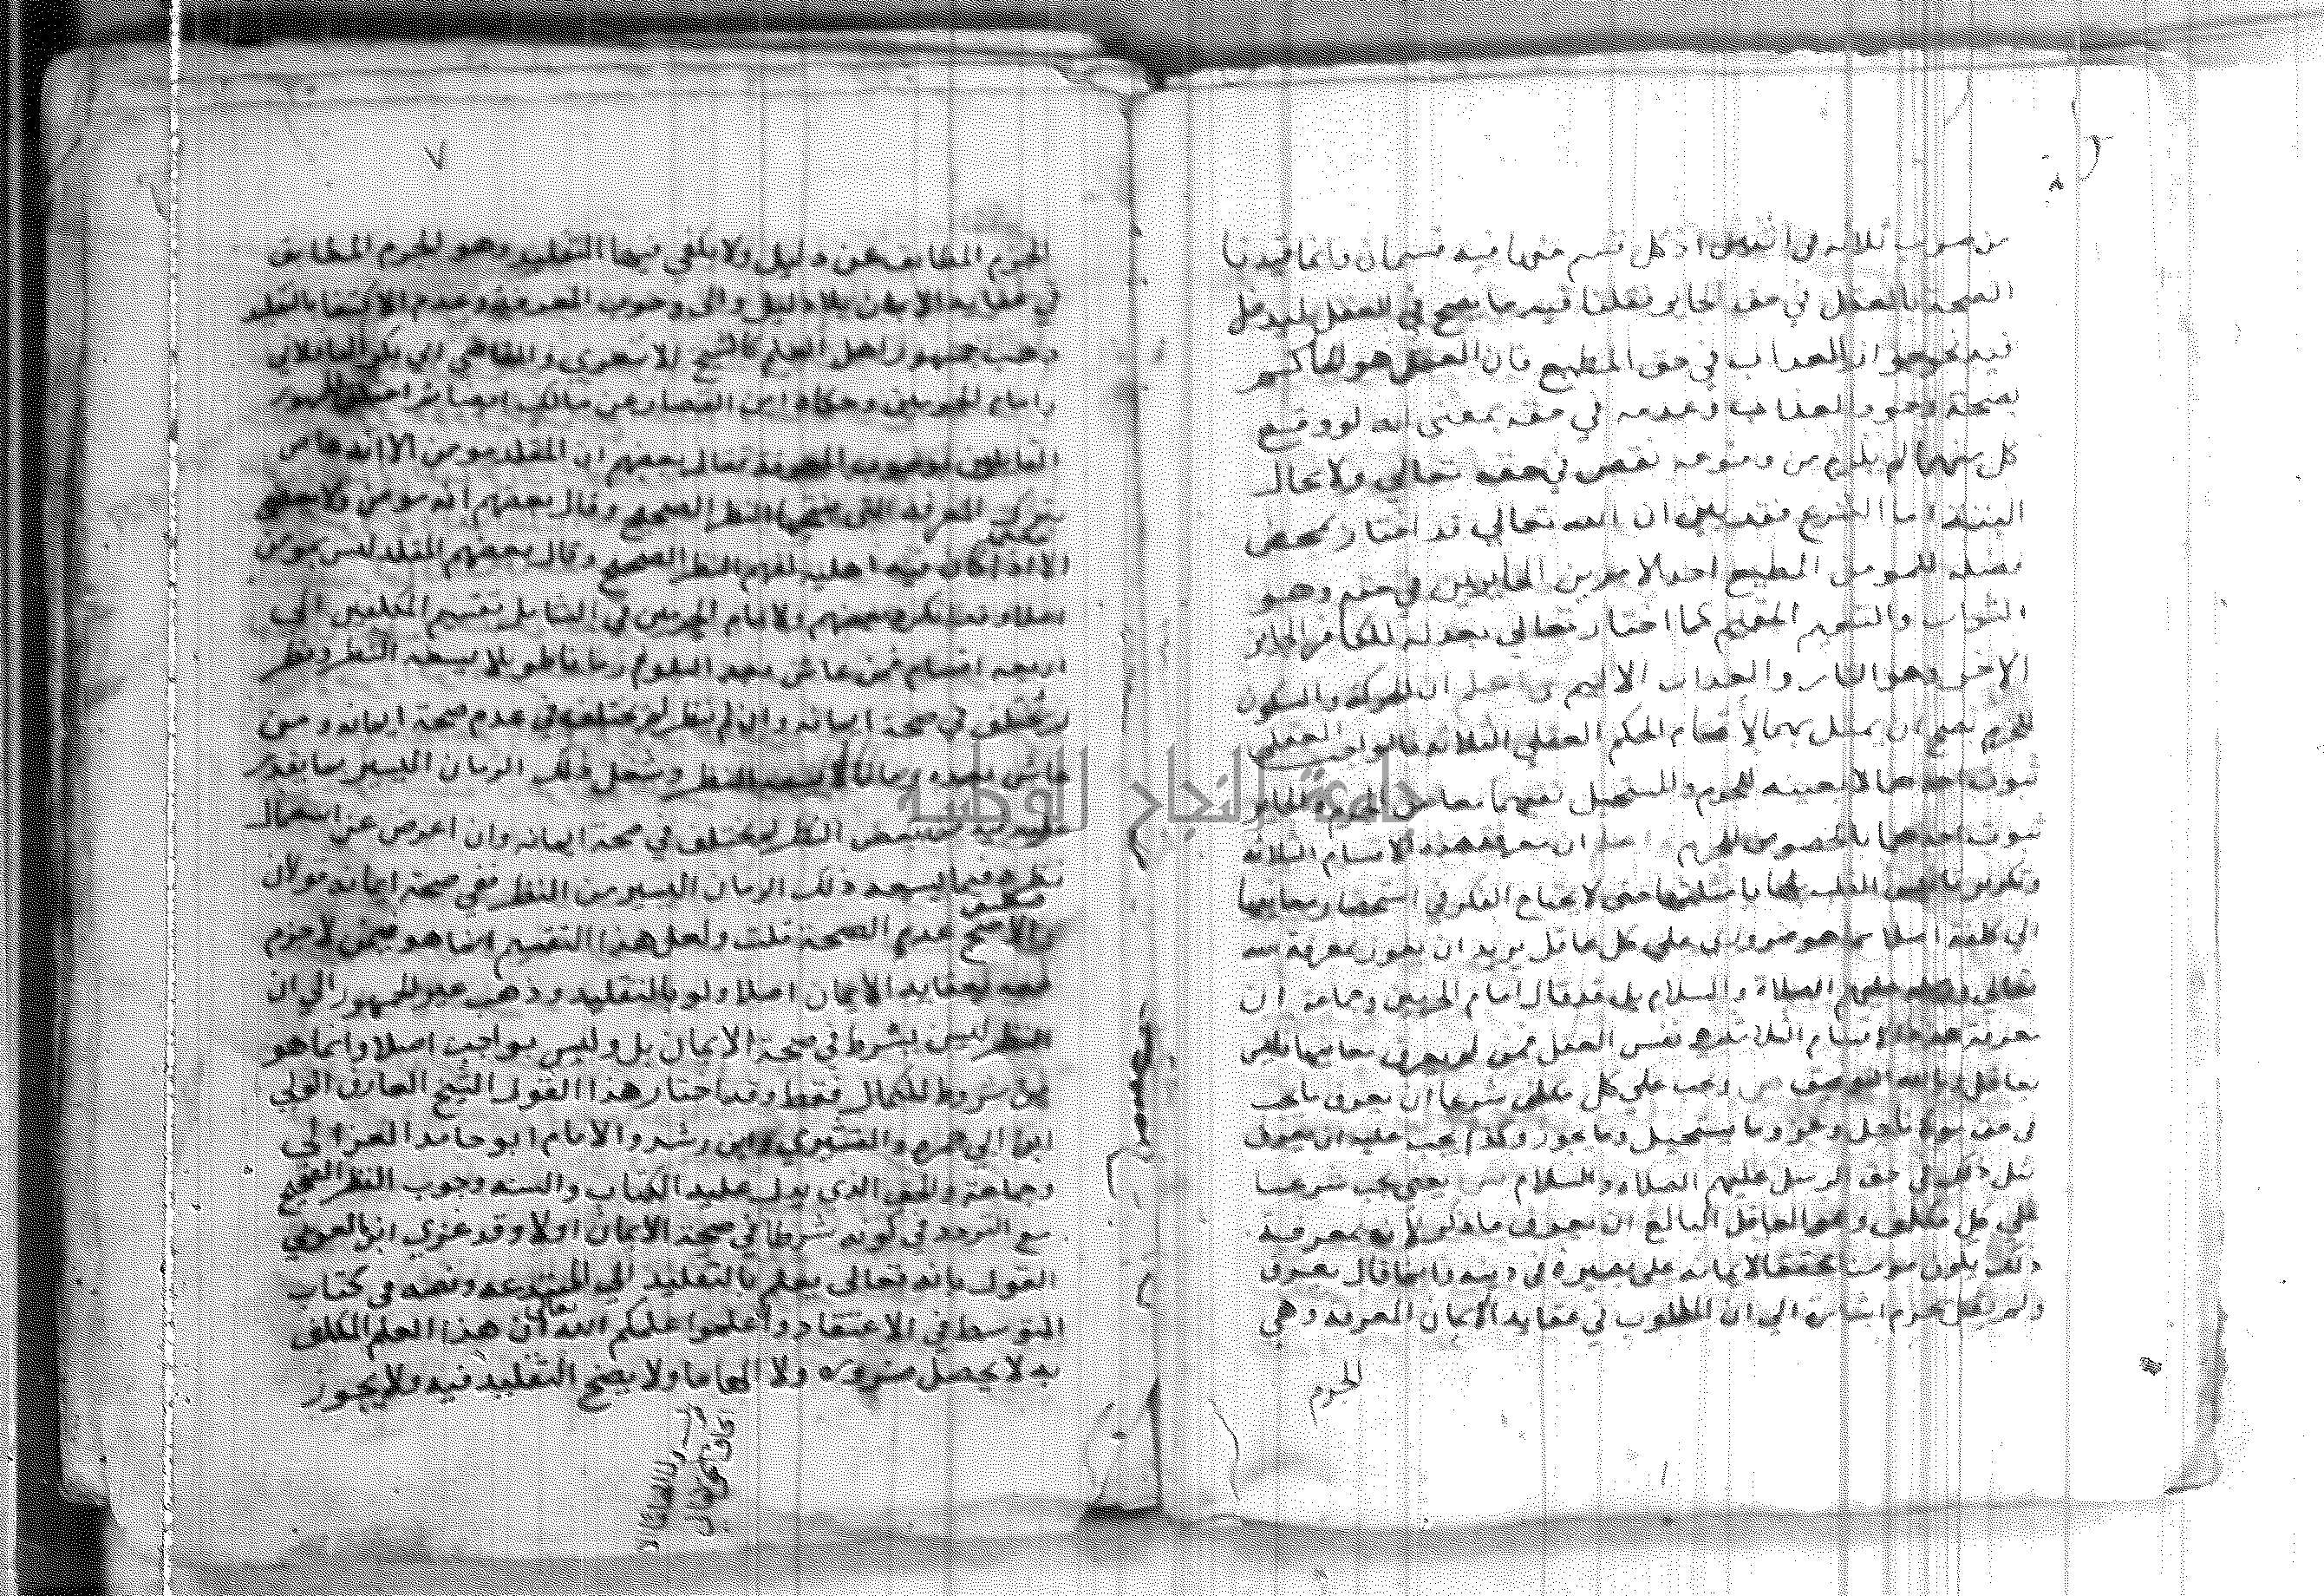 من ضرب ثلاثة في اثنين اذ كل قسم منها فيه قسمان وانما قيدنا
الصحة بالعقل في حق الجايز فقلنا فيه ما يصح في العقل ليدخل
فيه نحو جواز العذاب في حق المطيع فان العقل هو الحاكم
بصحة وجود العذاب وعدمه في حقه بمعنى انه لو وقع
كل منهما لم يلزم من وقوعه نقص في حقه تعالي ولا محال
البتة اما الشرع فقد بين ان الله تعالي قد اختار بمحض
فضله للمومن المطيع احد الامرين الجايزين في حقه وهو
الثواب والنعيم المقيم كما اختار تعالي بعدله للكافر الجايز
الاخر وهو النار والعذاب الاليم واعلم ان الحركة والسكون
للجرم يصح ان يمثل بهما لاقسام الحكم العقلي الثلاثة فالواجب العقلي
ثبوت احدهما لا بعينه للجرم والمستحيل نفيهما معا عن الجرم والجايز
ثبوت احدهما بالخصوص للجرم واعلم ان معرفة هذه الاقسام الثلاثة
وتكريرها تانيس القلب بها بامثلتها حتى لا يحتاج الفكر في استحضار معانيها
الي كلفة اصلا مما هو ضروري علي كل عاقل يريد ان يفوز بمعرفة الله
تعالي ورسله عليهم الصلاة والسلام بل قد قال امام الحرمين وجماعة ان
معرفة هذه الاقسام الثلاثة هي نفس العقل فمن لم يعرف معانيها فليس
بعاقل وبالله التوفيق ص ويجب علي كل مكلف شرعا ان يعرف ما يجب
في حق مولانا جل وعز وما يستحيل وما يجوز وكذا يجب عليه ان يعرف
مثل ذلك في حق الرسل عليهم الصلاة والسلام ش يعني يجب شرعا
علي كل مكلف وهو العاقل البالغ ان يعرف ما ذكر لانه بمعرفة
ذلك يكون مومنا محققا لايمانه علي بصيرة في دينه وانما قال يعرف
ولم يقل يجزم اشارة الي ان المطلوب في عقايد الايمان المعرفة وهي
الجزم
٧
الجزم المطابق عن دليل ولا يكفي فيها التقليد وهو الجزم المطابق
في عقايد الايمان بلا دليل والى وجوب المعرفة وعدم الاكتفا بالتقليد
ذهب جمهور اهل العلم كالشيخ الاشعري والقاضي ابي بكر الباقلاني
وامام الحرمين وحكاه ابن القصار عن مالك ايضا ثم اختلف الجمهور
القايلين بوجوب المعرفة فقال بعضهم ان المقلد مومن الا انه عاص
بترك المعرفة التي ينتجها النظر الصحيح وقال بعضهم انه مومن ولا يعصي
الا اذا كان فيه اهلية لفهم النظر الصحيح وقال بعضهم المقلد ليس بمومن
اصلا وقد انكره بعضهم ولامام الحرمين في الشامل تقسيم المكلفين الي
اربعة اقسام فمن عاش بعد البلوغ زمانا طويلا يسعه النظر ونظر
لم يختلف في صحة ايمانه وان لم ينظر لم يختلف في عدم صحة ايمانه ومن
عاش بعده زمانا لا يسعه النظر وشغل ذلك الزمان اليسير بما يقدر
عليه فيه من بعض النظر لم يختلف في صحة ايمانه وان اعرض عن استعمال
نظره فيما يسعه ذلك الزمان اليسير من النظر ففي صحة ايمانه قولان
والاصح عدم الصحة قلت ولعل هذا التقسيم انما هو فيمن لا جزم
عنده بعقايد الايمان اصلا ولو بالتقليد وذهب غير الجمهور الي ان
النظر ليس بشرط في صحة الايمان بل وليس بواجب اصلا وانما هو
من شروط الكمال فقط وقد اختار هذا القول الشيخ العارف الولي
ابن ابي جمرة والقشيري وابن رشد والامام ابو حامد الغزالي
وجماعة والحق الذي يدل عليه الكتاب والسنة وجوب النظر الصحيح
مع التردد في كونه شرطا في صحة الايمان اولا وقد عزي ابن العربي
القول بانه تعالى يعلم بالتقليد الي المبتدعة ونصه في كتاب
المتوسط في الاعتقاد واعلموا علمكم الله تعالى ان هذا العلم المكلف
به لا يحصل ضرورة ولا الهاما ولا يصح التقليد فيه ولا يجوز
جامعة النجاح الوطنية